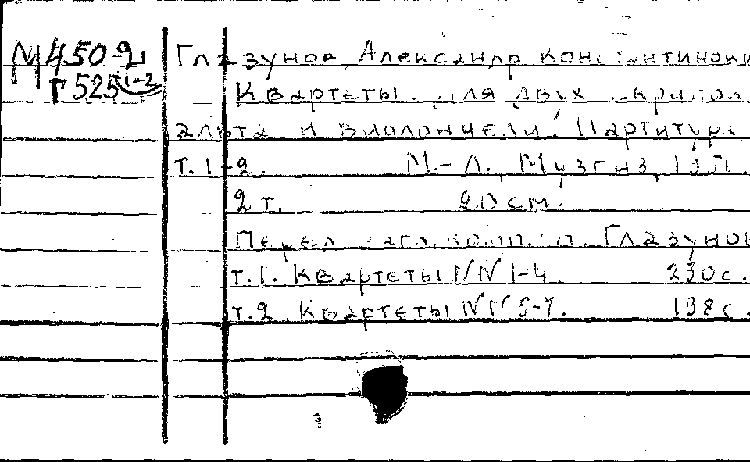 М450-2 Глазунов, Александр Константинович
Г525 1-2 Квартеты для двух скрипок,
альта и виолончели. Партитура
т. 1-2. М.-Л., Музгиз,
2 т. 20 см.
Перед загл. Глазунов
т. 1. Квартеты NN 1-4. 230 с.
т. 2. Квартеты NN 5-7. 198 с.